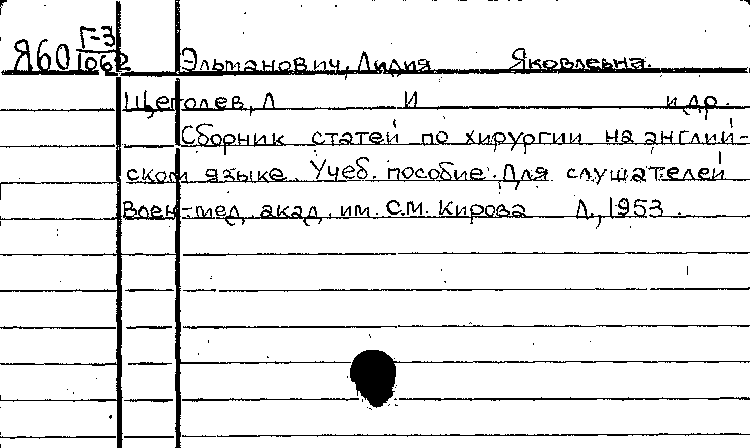 Я60 Г-3
1062 Эльманович, Лидия Яковлевна.
Щеголев, Л И и др.
Сборник статей по хирургии на англий-
ском языке. Учеб. пособие. Для слушателей
Воен-мед. акад. им. С.М. Кирова Л., 1953.